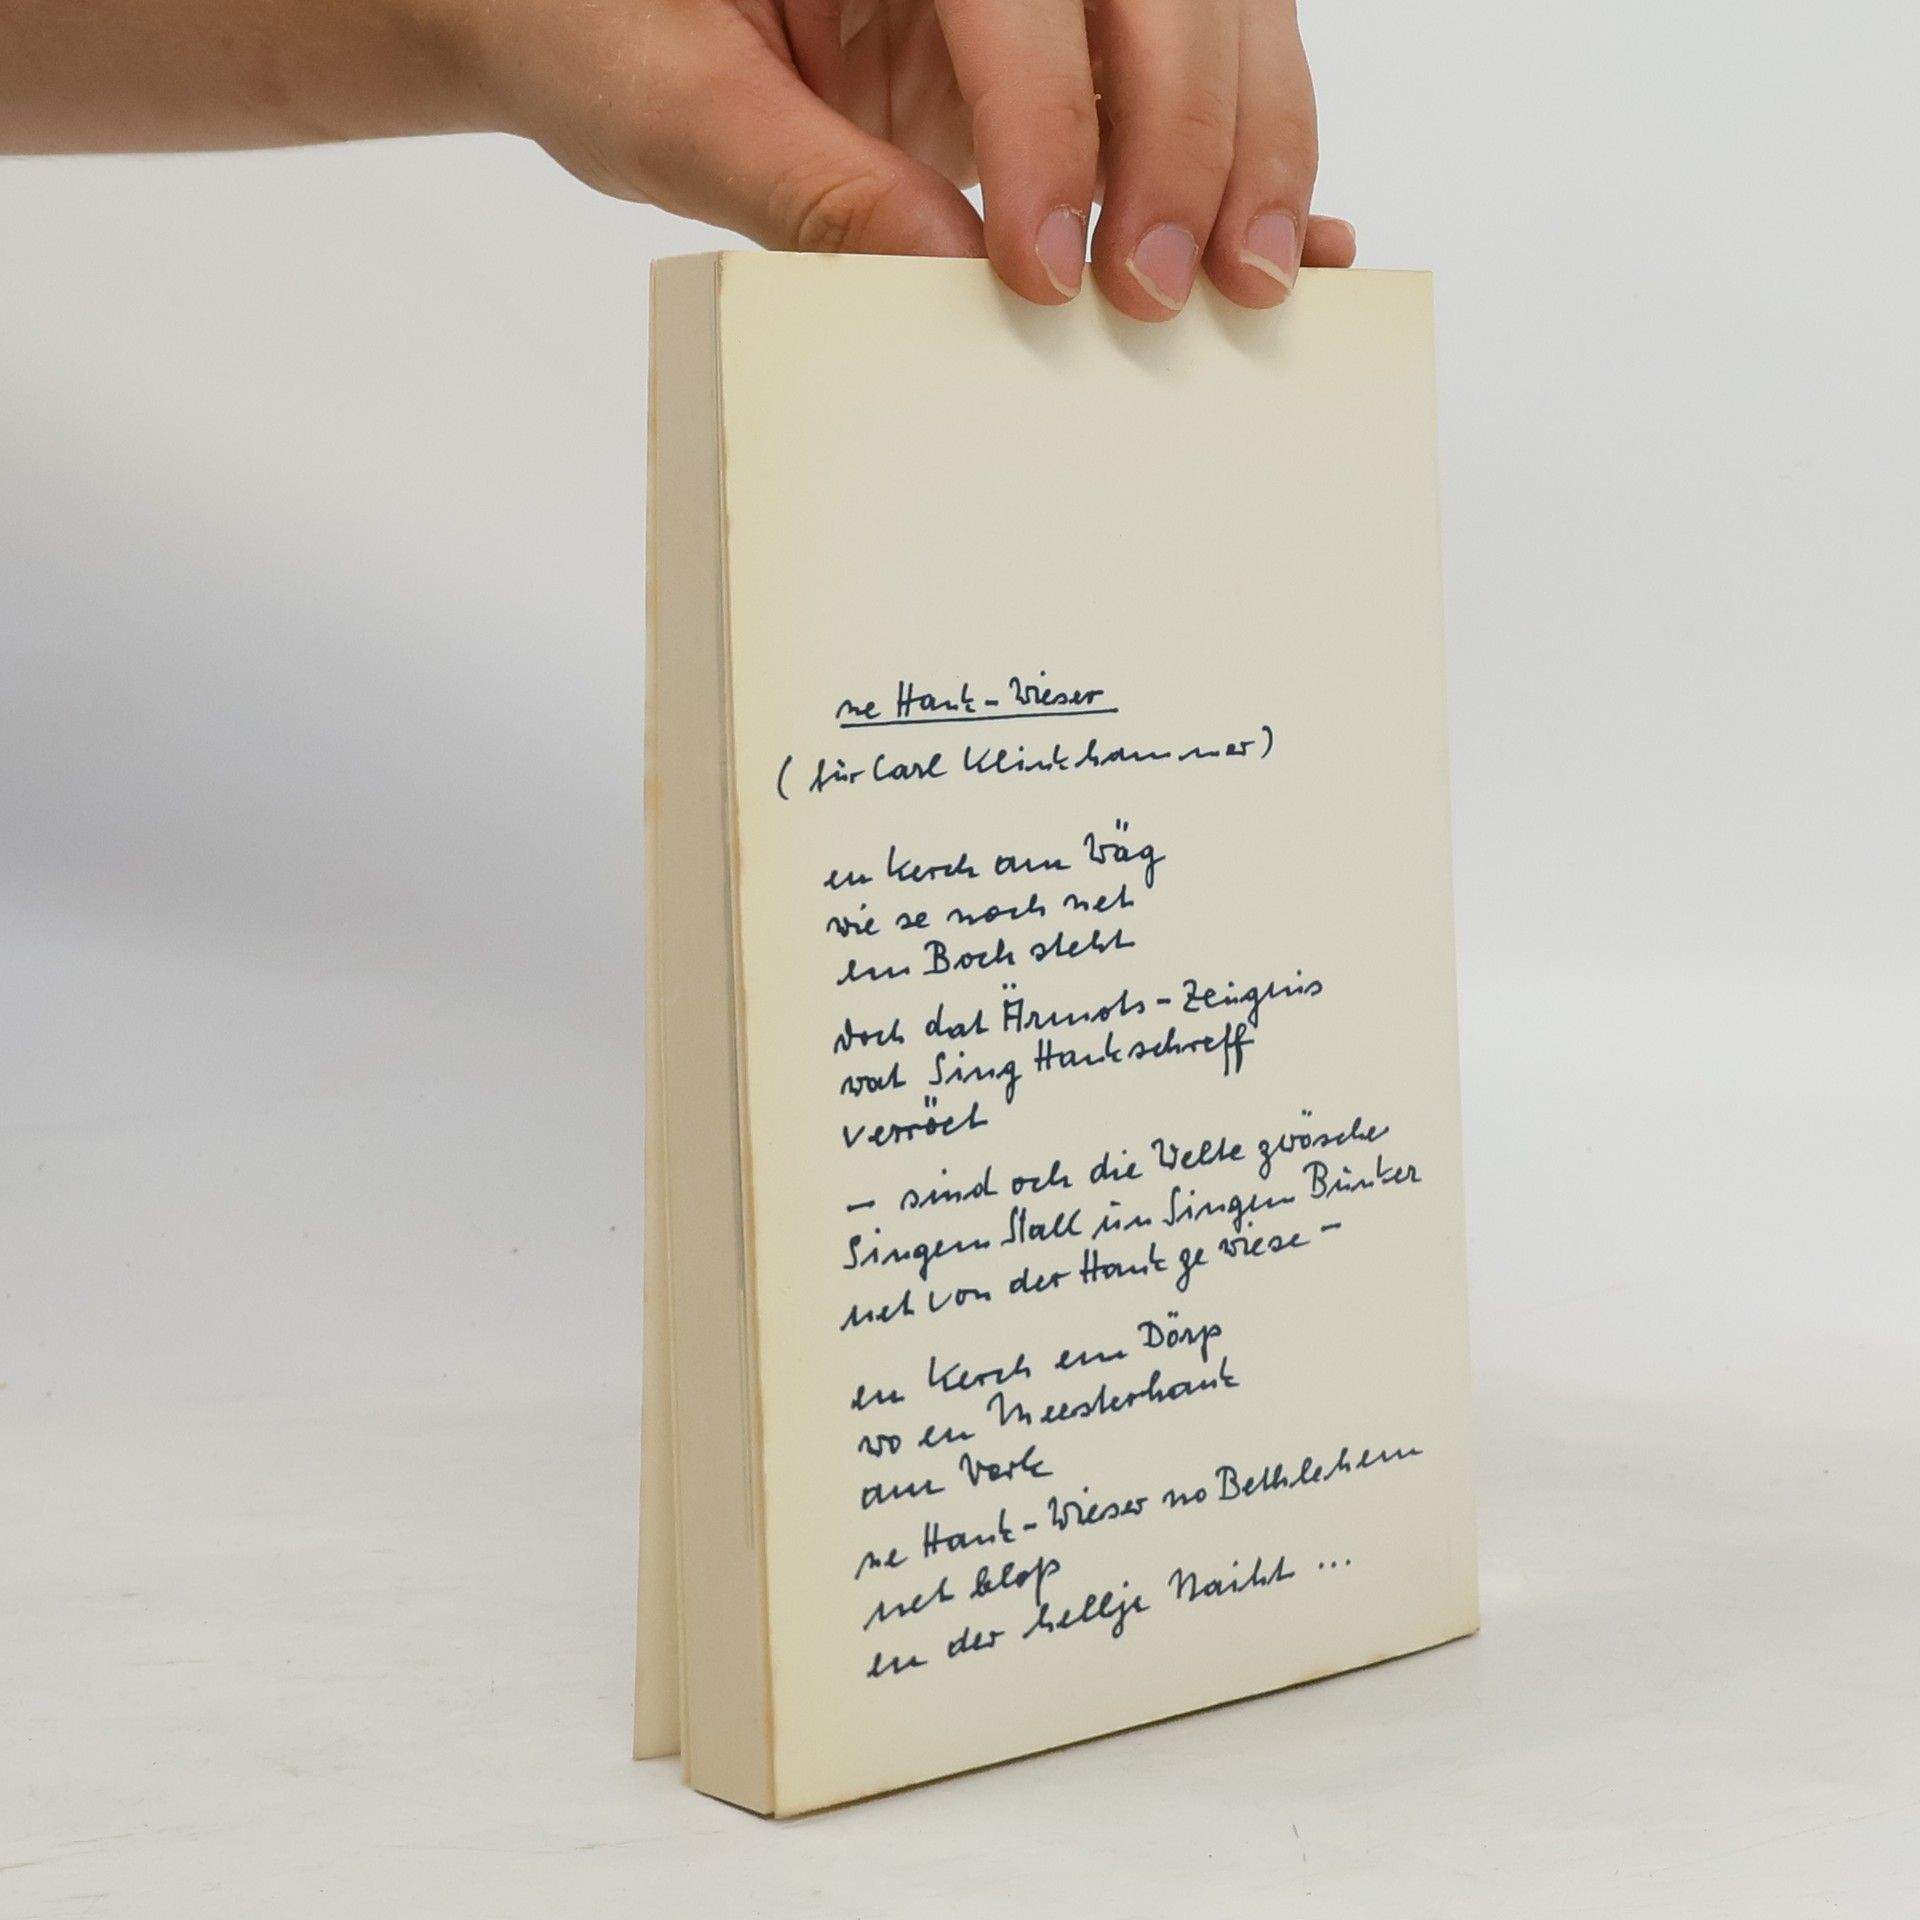 ne Hank-Wieser
(für Carl Klinkhammer)
en Kerch am Wäg
wie se noch net
em Boch steht
doch dat Ärmots-Zeugnis
wat Sing Hankschreff
verröet
– sind och die Welte zwösche
Singem Stall un Singem Bunker
net von der Hank ze wiese –
en Kerch em Dörp
wo en Meesterhank
am Werk
ne Hank-Wieser no Bethlehem
net bloß
en der hellje Nacht ...